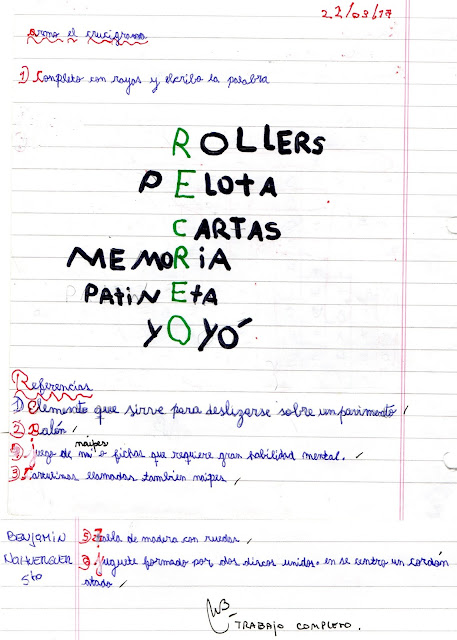 22/03/17
armo el crucigrama
1) Completo con rayas y escribo la palabra
ROLLERS
PELOTA
CARTAS
MEMORIA
PATINETA
YOYÓ
Referencias
1) Elemento que sirve para deslizarse sobre un pavimento
2) Balón
naipes
4) juego de o fichas que requiere gran habilidad mental.
3) llamadas tambien naipes
5) Tabla de madera con ruedas
6) juguete formado por dos discos unidos. en se centro un cordón
atado
BENJAMIN
NAHUERGUER
5to
TRABAJO COMPLETO.